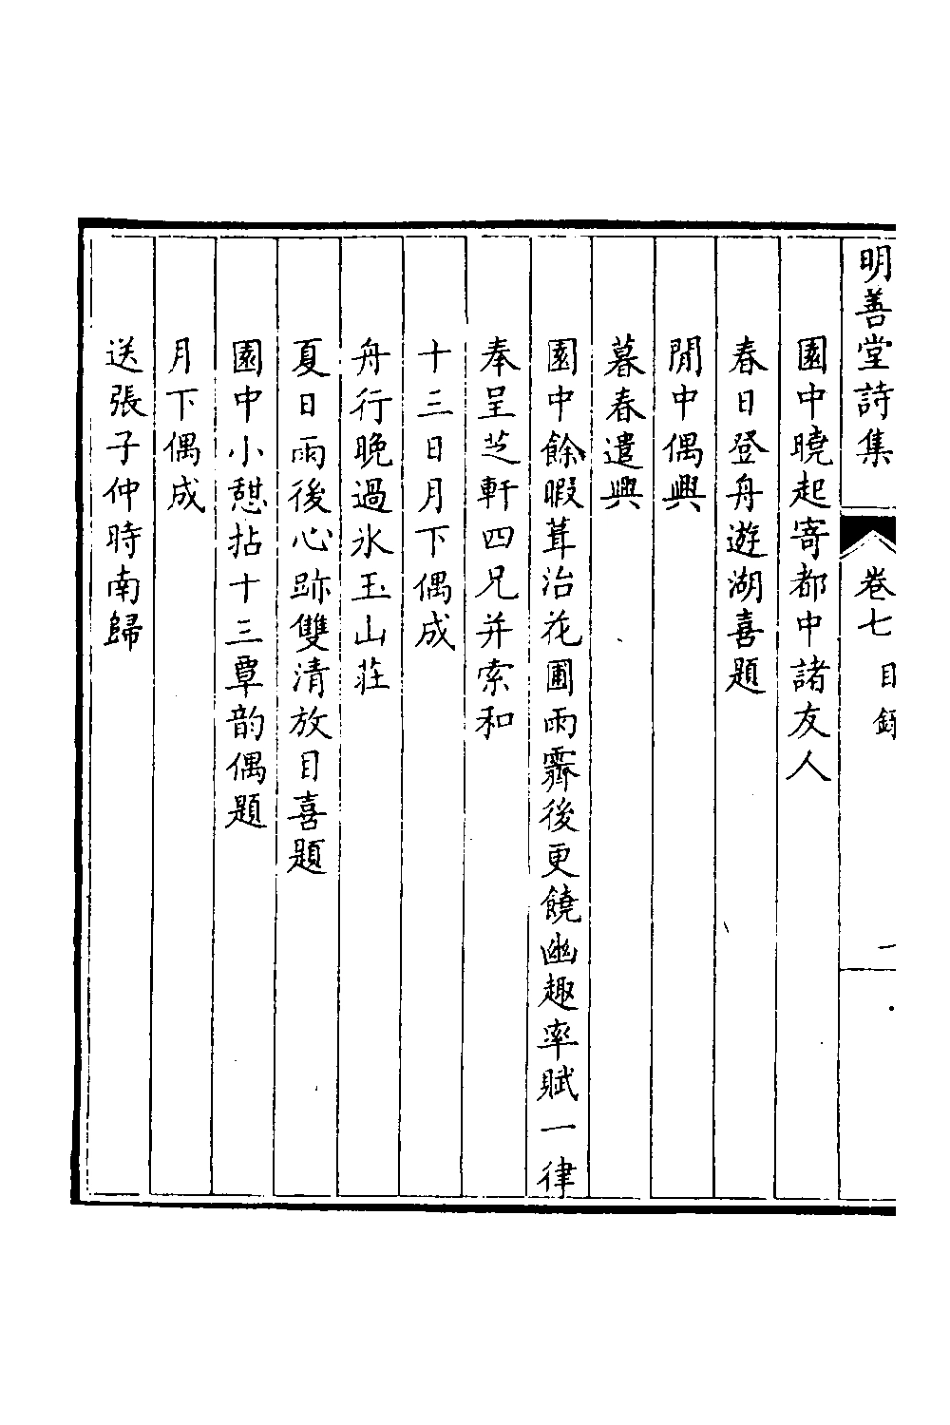 明善堂詩集 卷七 目錄 一
園中曉起寄都中諸友人
春日登舟遊湖喜題
閒中偶興
暮春遣興
園中餘暇葺治花圃雨霽後更饒幽趣率賦一律
奉呈芝軒四兄并索和
十三日月下偶成
舟行晚過氷玉山莊
夏日雨後心跡雙清放目喜題
園中小憇拈十三覃韵偶題
月下偶成
送張子仲時南歸